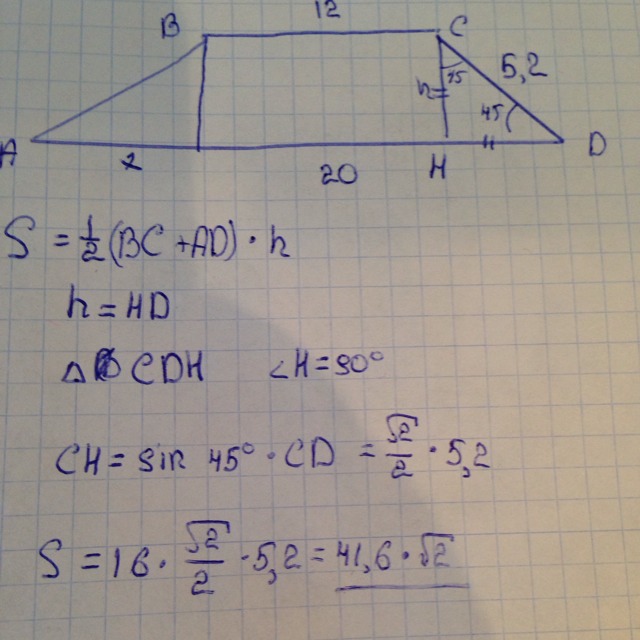 12
B C
h 45 5,2
45
A x 20 H D
S = 1/2 (BC + AD) · h
h = HD
△ CDH ∠H = 90°
CH = sin 45° · CD = √2/2 · 5,2
S = 16 · √2/2 · 5,2 = 41,6 · √2